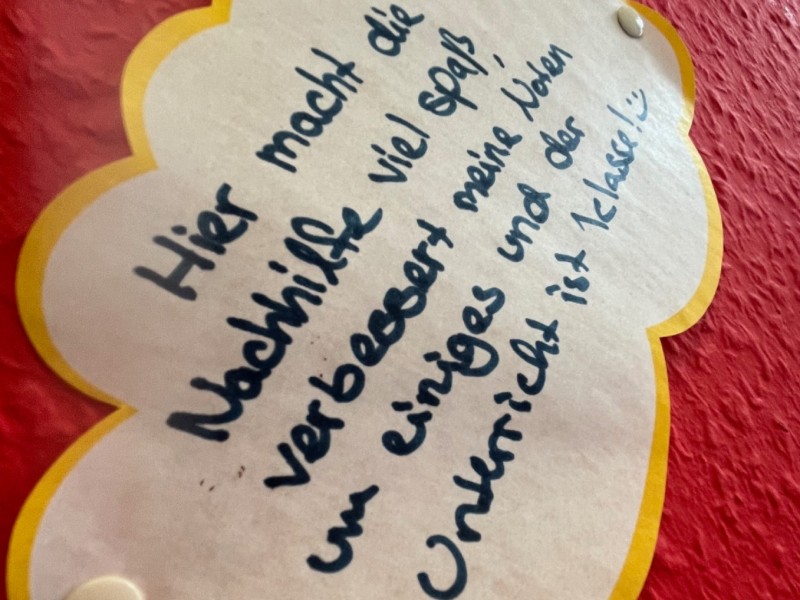 Hier macht die
Nachhilfe viel spaß,
verbessert meine Noten
um einiges und der
Unterricht ist klasse! :)